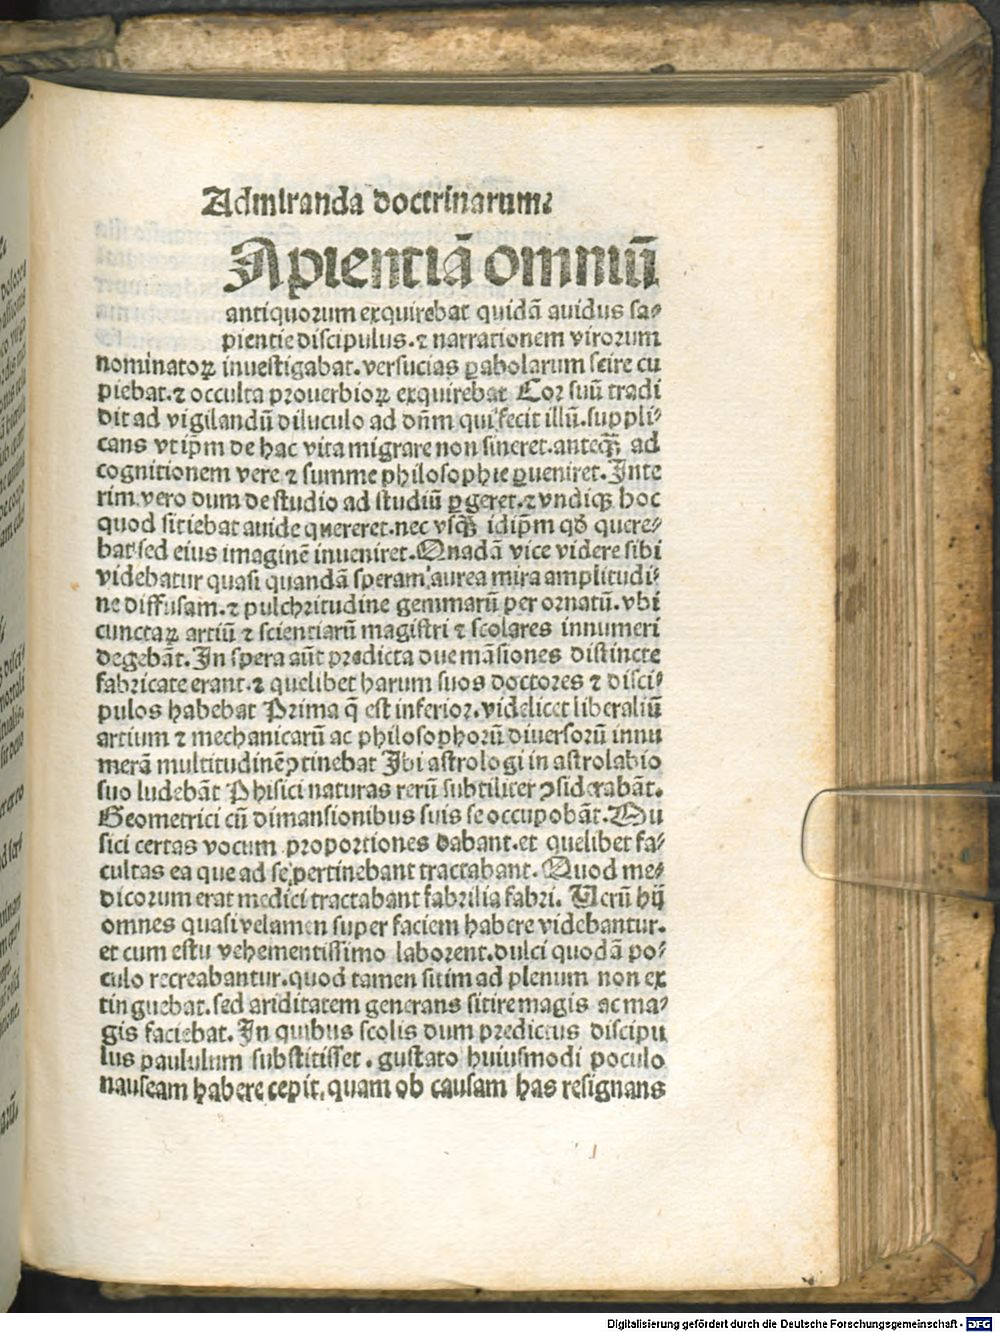 Admiranda doctrinarum:
Apientiā omniū
antiquorum exquirebat quidā auidus sa⸗
pientie discipulus. ⁊ narrationem virorum
nominatoꝝ inuestigabat. versucias ꝑabolarum scire cu
piebat. ⁊ occulta prouerbioꝝ exquirebat Cor suū tradi
dit ad vigilandū diluculo ad dn̄m qui fecit illū. suppli⸗
cans vt ip̄m de hac vita migrare non sineret. anteq̄ȝ ad
cognitionem vere ⁊ summe philosophie ꝑueniret. Inte
rim vero dum de studio ad studiū ꝑgeret. ⁊ vndiqȝ hoc
quod sitiebat auide quereret. nec vsq̄ȝ idip̄m qđ quere⸗
bat sed eius imaginē inueniret. Quadā vice videre sibi
videbatur quasi quandā speram aurea mira amplitudi⸗
ne diffusam. ⁊ pulchritudine gemmarū per ornatū. vbi
cunctaꝝ artiū ⁊ scientiarū magistri ⁊ scolares innumeri
degebāt. In spera aūt predicta due māsiones distincte
fabricate erant. ⁊ quelibet harum suos doctores ⁊ disci⸗
pulos habebat Prima q̄ est inferior. videlicet liberaliū
artium ⁊ mechanicarū ac philosophorū diuersorū innu
merā multitudinē ꝯtinebat Ibi astrologi in astrolabio
suo ludebāt Phisici naturas rerū subtiliter ꝯsiderabāt.
Geometrici cū dimansionibus suis se occupobāt. Mu
sici certas vocum proportiones dabant. et quelibet fa⸗
cultas ea que ad se pertinebant tractabant. Quod me⸗
dicorum erat medici tractabant fabrilia fabri. Verū hij
omnes quasi velamen super faciem habere videbantur.
et cum estu vehementissimo laborent. dulci quodā po⸗
culo recreabantur. quod tamen sitim ad plenum non ex
tinguebat. sed ariditatem generans sitire magis ac ma⸗
gis faciebat. In quibus scolis dum predictus discipu
lus paululum substitisset. gustato huiusmodi poculo
nauseam habere cepit. quam ob causam has resignans
Digitalisierung gefördert durch die Deutsche Forschungsgemeinschaft - DFG